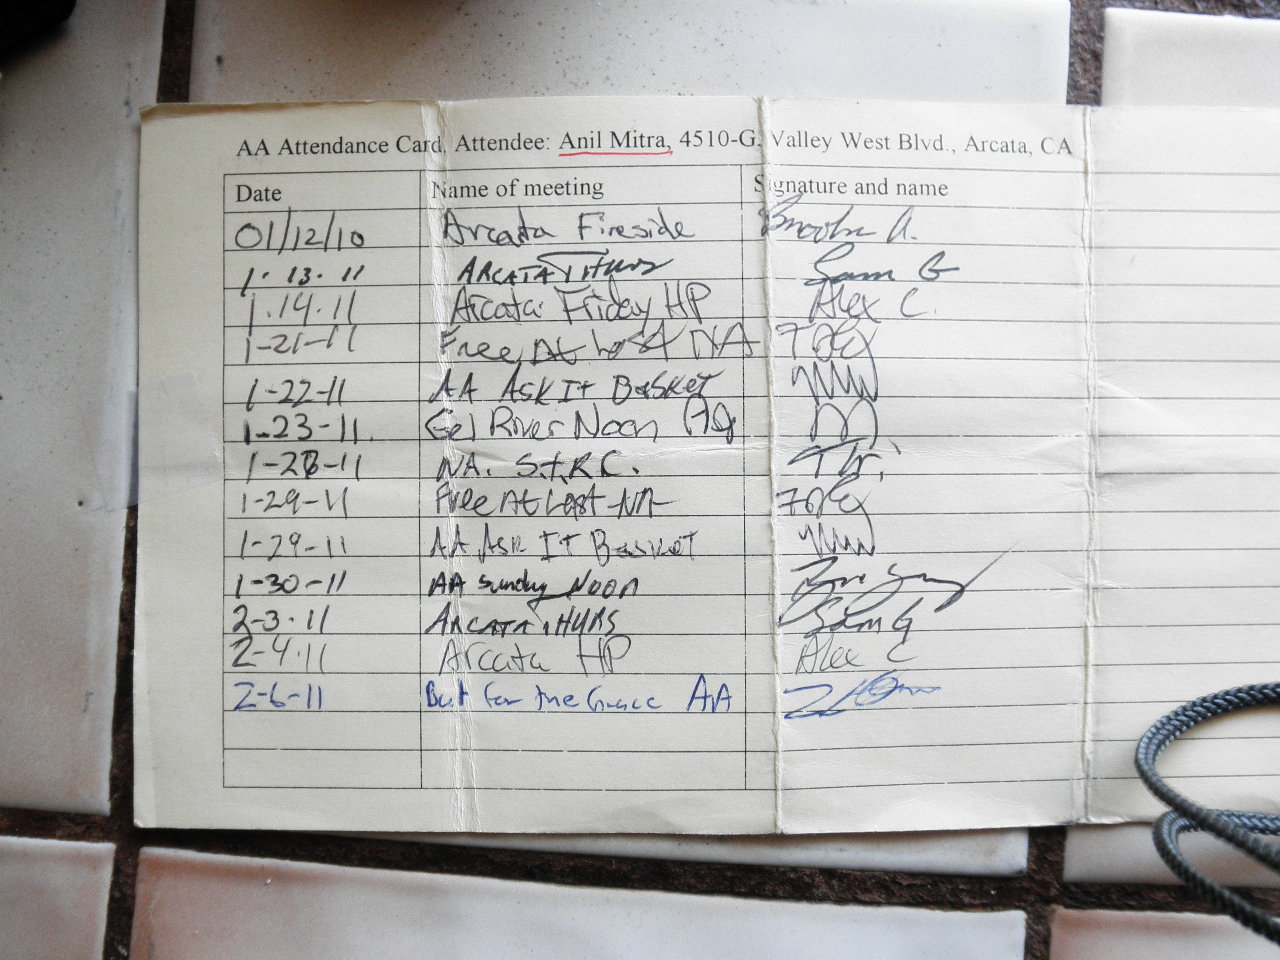 AA Attendance Card, Attendee: Anil Mitra, 4510-G, Valley West Blvd., Arcata, CA
Date Name of meeting Signature and name
01/12/10 Arcata Fireside Brooke A.
1.13.11 ARCATA THURS Sam G
1.14.11 Arcata Friday HP Alex C.
1-21-11 Free At Last NA
1-22-11 AA ASK It BASKET
1-23-11. Eel River Noon AA
1-28-11 NA.
1-29-11 Free At Last NA
1-29-11 AA Ask It Basket
1-30-11 AA Sunday NOON
2-3.11 ARCATA THURS Sam G
2-4.11 Arcata HP Alex C
2-6-11 But for the Grace AA